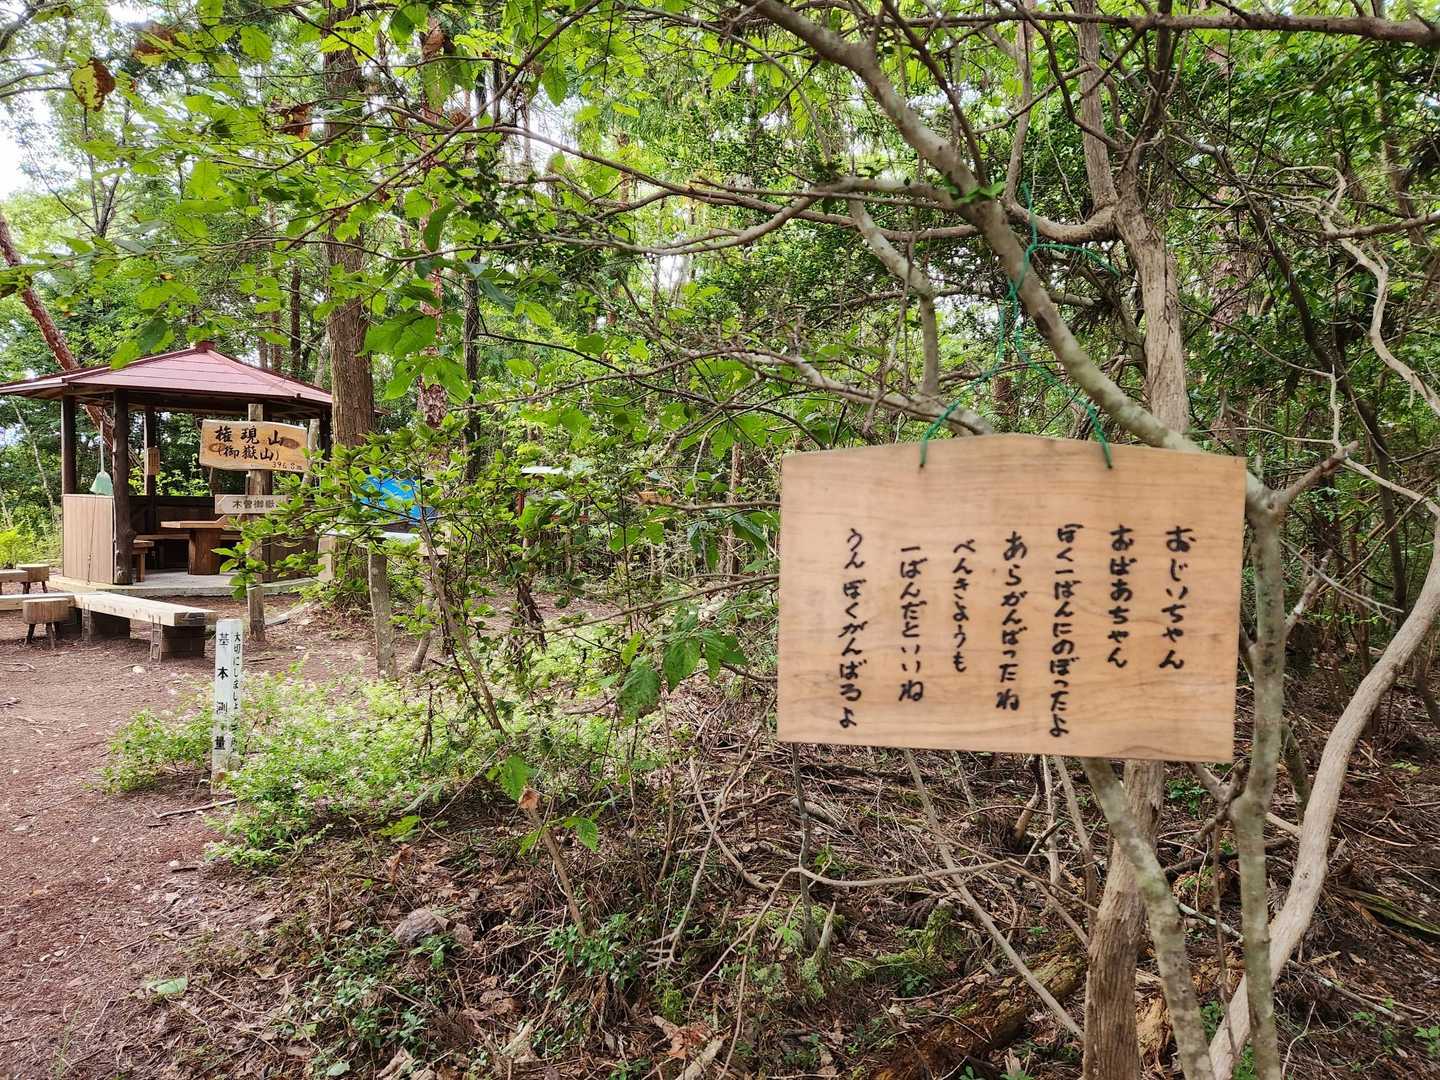 おじいちゃん
おばあちゃん
ぼく一ばんにのぼったよ
あらがんばったね
べんきょうも
一ばんだといいね
うんぼくがんばるよ
権現山
(御嶽山)
396.8m
木曽御嶽
大切にしましょう
基本測量